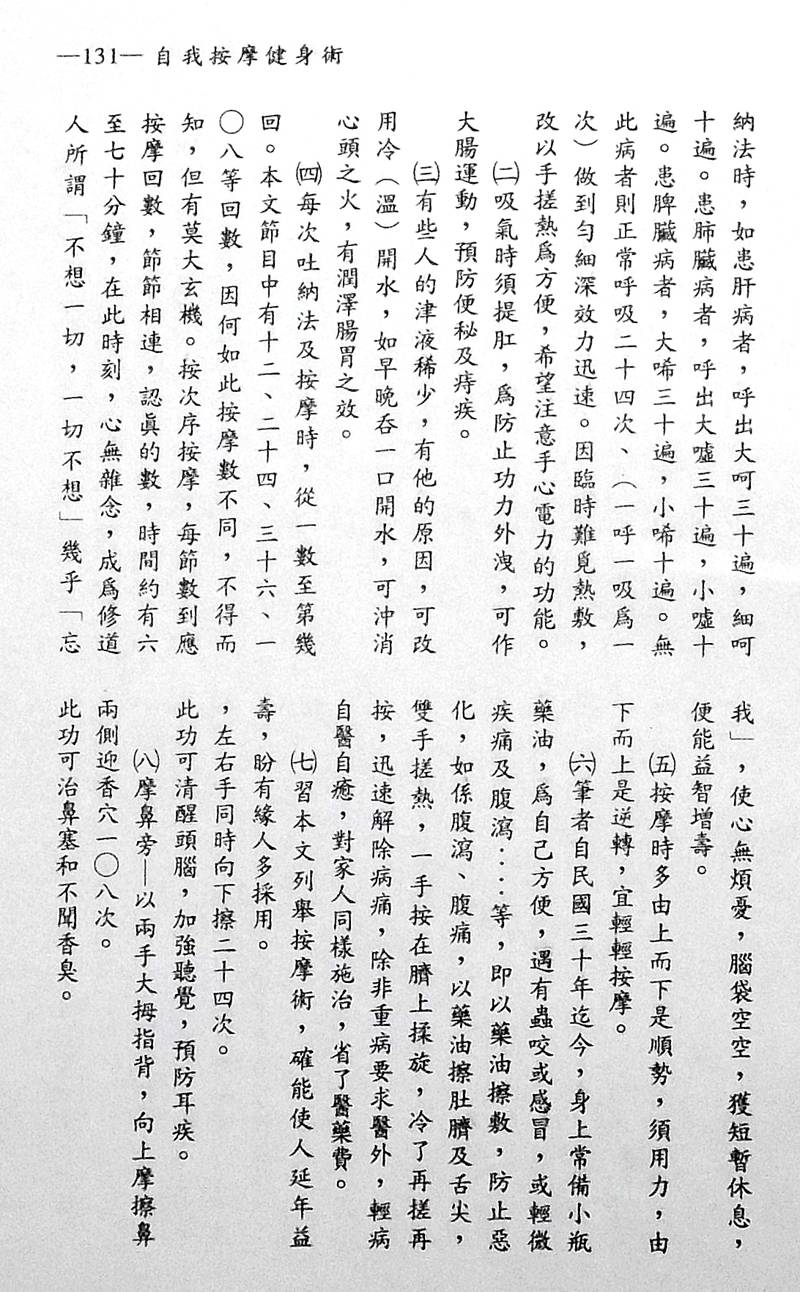 —131— 自我按摩健身術
納法時，如患肝病者，呼出大呵三十遍，細呵
十遍。患肺臟病者，呼出大噓三十遍，小噓十
遍。患脾臟病者，大唏三十遍，小唏十遍。無
此病者則正常呼吸二十四次、（一呼一吸爲一
次）做到勻細深效力迅速。因臨時難覓熱敷，
改以手搓熱爲方便，希望注意手心電力的功能。
㈡吸氣時須提肛，爲防止功力外洩，可作
大腸運動，預防便秘及痔疾。
㈢有些人的津液稀少，有他的原因，可改
用冷（溫）開水，如早晚吞一口開水，可沖消
心頭之火，有潤澤腸胃之效。
㈣每次吐納法及按摩時，從一數至第幾
回。本文節目中有十二、二十四、三十六、一
〇八等回數，因何如此按摩數不同，不得而
知，但有莫大玄機。按次序按摩，每節數到應
按摩回數，節節相連，認眞的數，時間約有六
至七十分鐘，在此時刻，心無雜念，成爲修道
人所謂「不想一切，一切不想」幾乎「忘
我」，使心無煩憂，腦袋空空，獲短暫休息，
便能益智增壽。
㈤按摩時多由上而下是順勢，須用力，由
下而上是逆轉，宜輕輕按摩。
㈥筆者自民國三十年迄今，身上常備小瓶
藥油，爲自己方便，遇有蟲咬或感冒，或輕微
疾痛及腹瀉‥‥等，即以藥油擦敷，防止惡
化，如係腹瀉、腹痛，以藥油擦肚臍及舌尖，
雙手搓熱，一手按在臍上揉旋，冷了再搓再
按，迅速解除病痛，除非重病要求醫外，輕病
自醫自癒，對家人同樣施治，省了醫藥費。
㈦習本文列舉按摩術，確能使人延年益
壽，盼有緣人多採用。
，左右手同時向下擦二十四次。
此功可清醒頭腦，加強聽覺，預防耳疾。
㈧摩鼻旁—以兩手大拇指背，向上摩擦鼻
兩側迎香穴一〇八次。
此功可治鼻塞和不聞香臭。